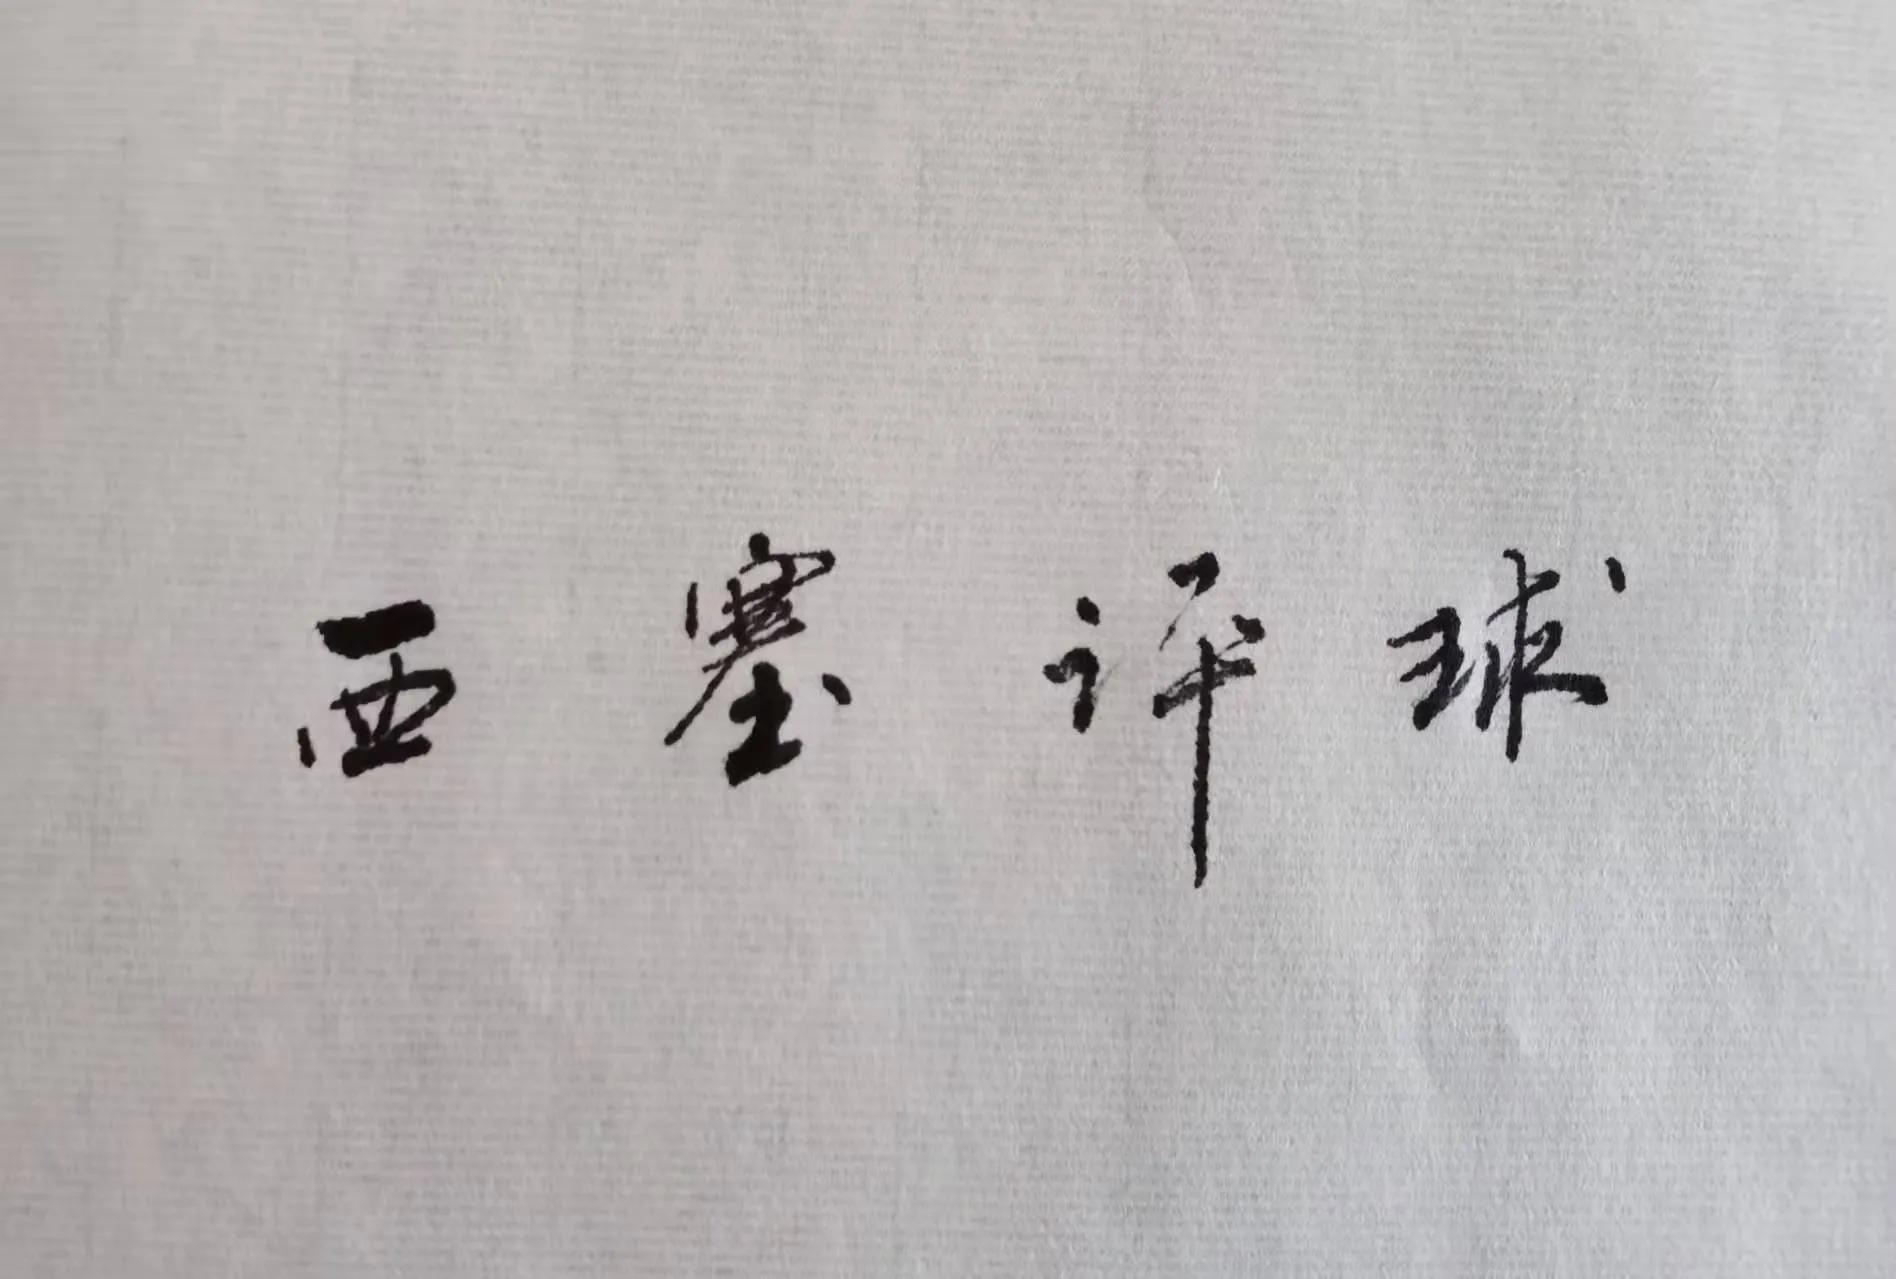 西塞评球